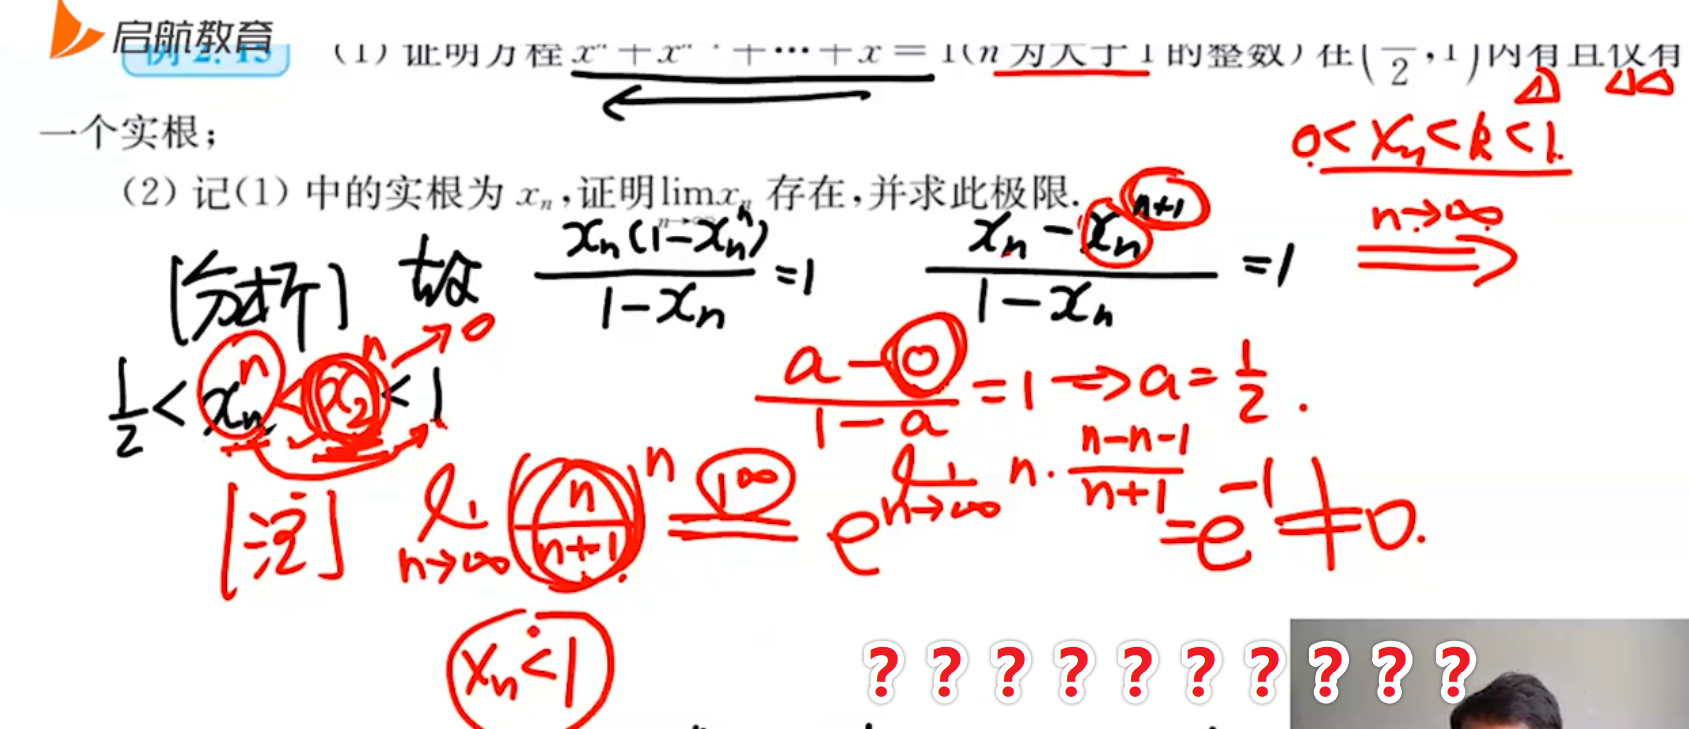 启航教育
例 2.15 (1) 证明方程 xⁿ + xⁿ⁻¹ + ⋯ + x = 1(n 为大于 1 的整数) 在 (1/2, 1) 内有且仅有
一个实根;
0 < xn < k < 1
(2) 记(1) 中的实根为 xn,证明 lim n→∞ xn 存在,并求此极限.
n→∞
[分析] 故 xn(1-xnⁿ)/(1-xn) = 1 (xn - xnⁿ⁺¹)/(1-xn) = 1
1/2 < xnⁿ < x2ⁿ < 1 → 0
(a-0)/(1-a) = 1 ⇒ a = 1/2.
[注] lim n→∞ (n/(n+1))ⁿ = 1^∞ = e^(lim n→∞ n·(n-n-1)/(n+1)) = e⁻¹ ≠ 0.
xn < 1
? ? ? ? ? ? ? ? ? ?